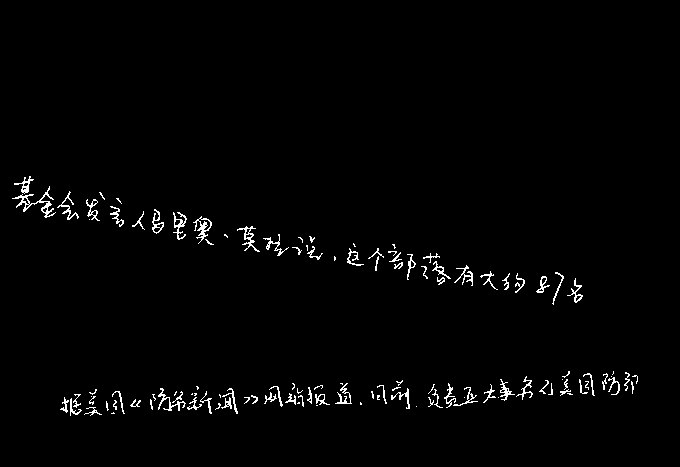 基金会发言人马里奥、莫拉说，这个部落有大约87名
据美国《防务新闻》网站报道，日前，负责亚太事务的美国防部